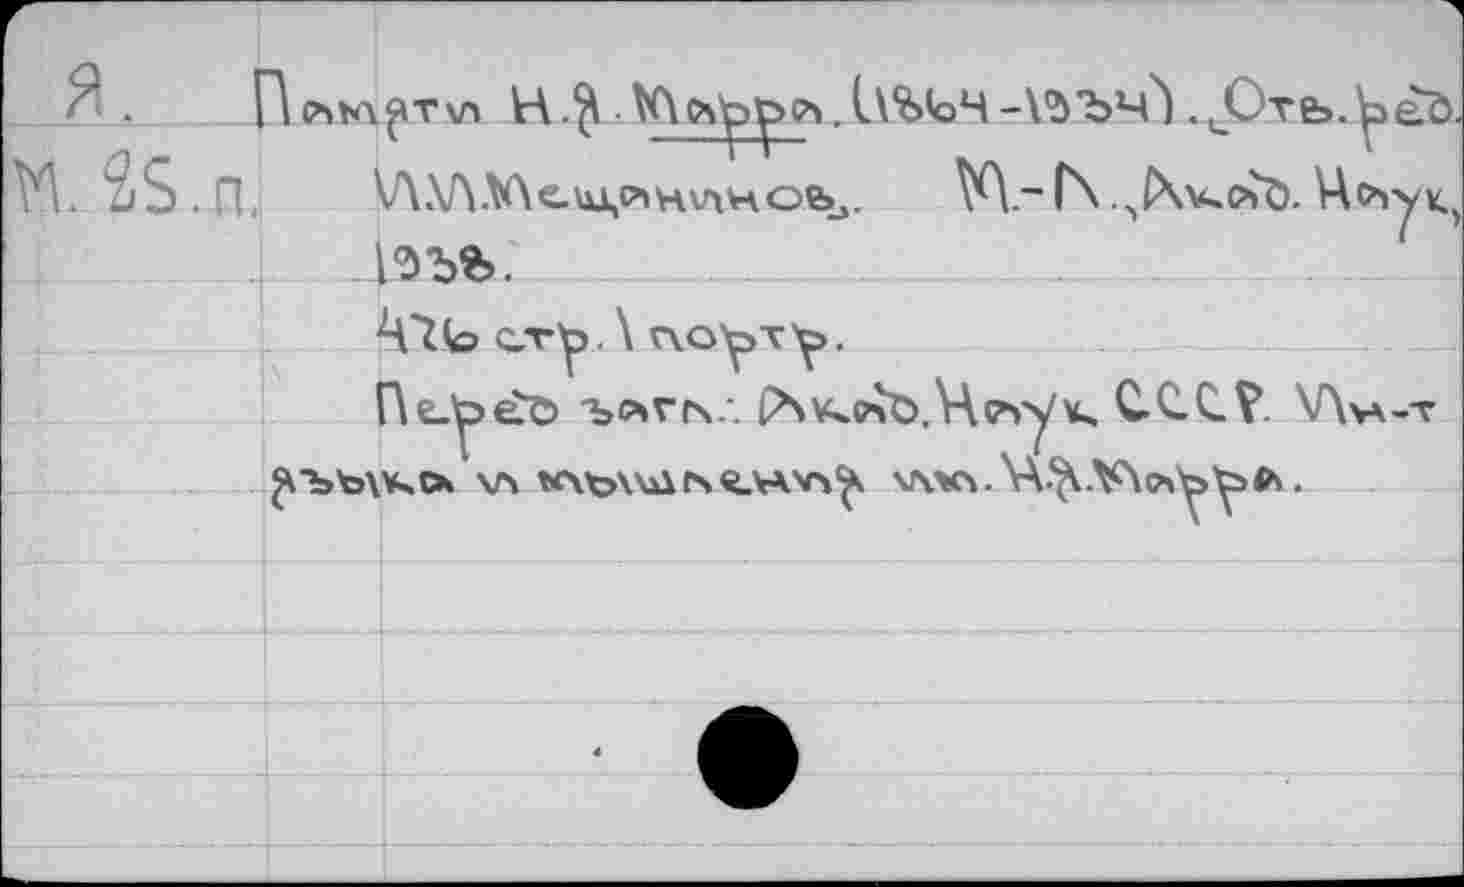 Я. Памяти Н.Я. Марра. (1864-1934). Отв. ред.
М.25.п. И.И.Мещанинов. М.-Л., Акад. Наук,
1938.
476 стр. 1 портр.
Перед загл.: Акад. Наук СССР. Ин-т
языка и мышления им. Н.Я.Марра.